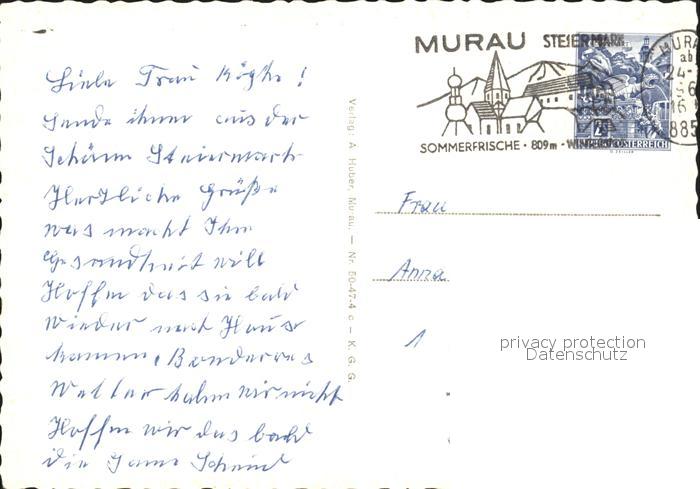 MURAU STEIERMARK
SOMMERFRISCHE · 809m · WINTER
MURAU
ab
24.
16
885
2 S ÖSTERREICH
Liebe Frau
Sende ihnen aus der
Schönen Steiermark
Herzliche Grüße
was macht Ihre
Gesundheit will
Hoffen das sie bald
wieder nach Haus
kommen, Besonderes
Wetter haben wir nicht
Hoffen wir das bald
die Sonne Scheind
Verlag: A. Huber, Murau. — Nr. 50-47-4 c — K. G. G.
Frau
Anna
1
privacy protection
Datenschutz